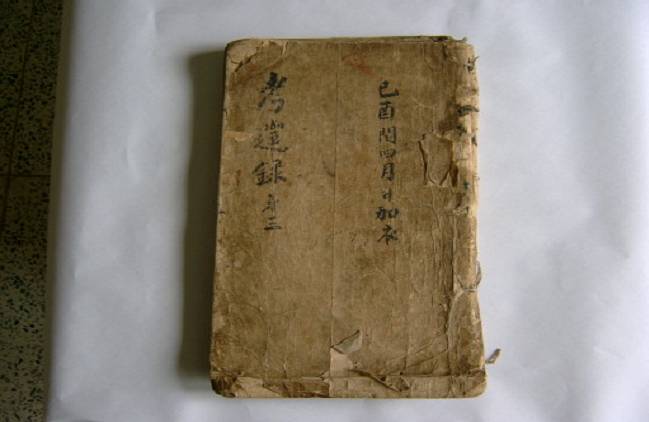 己酉閏四月日加衣
考選錄 第三